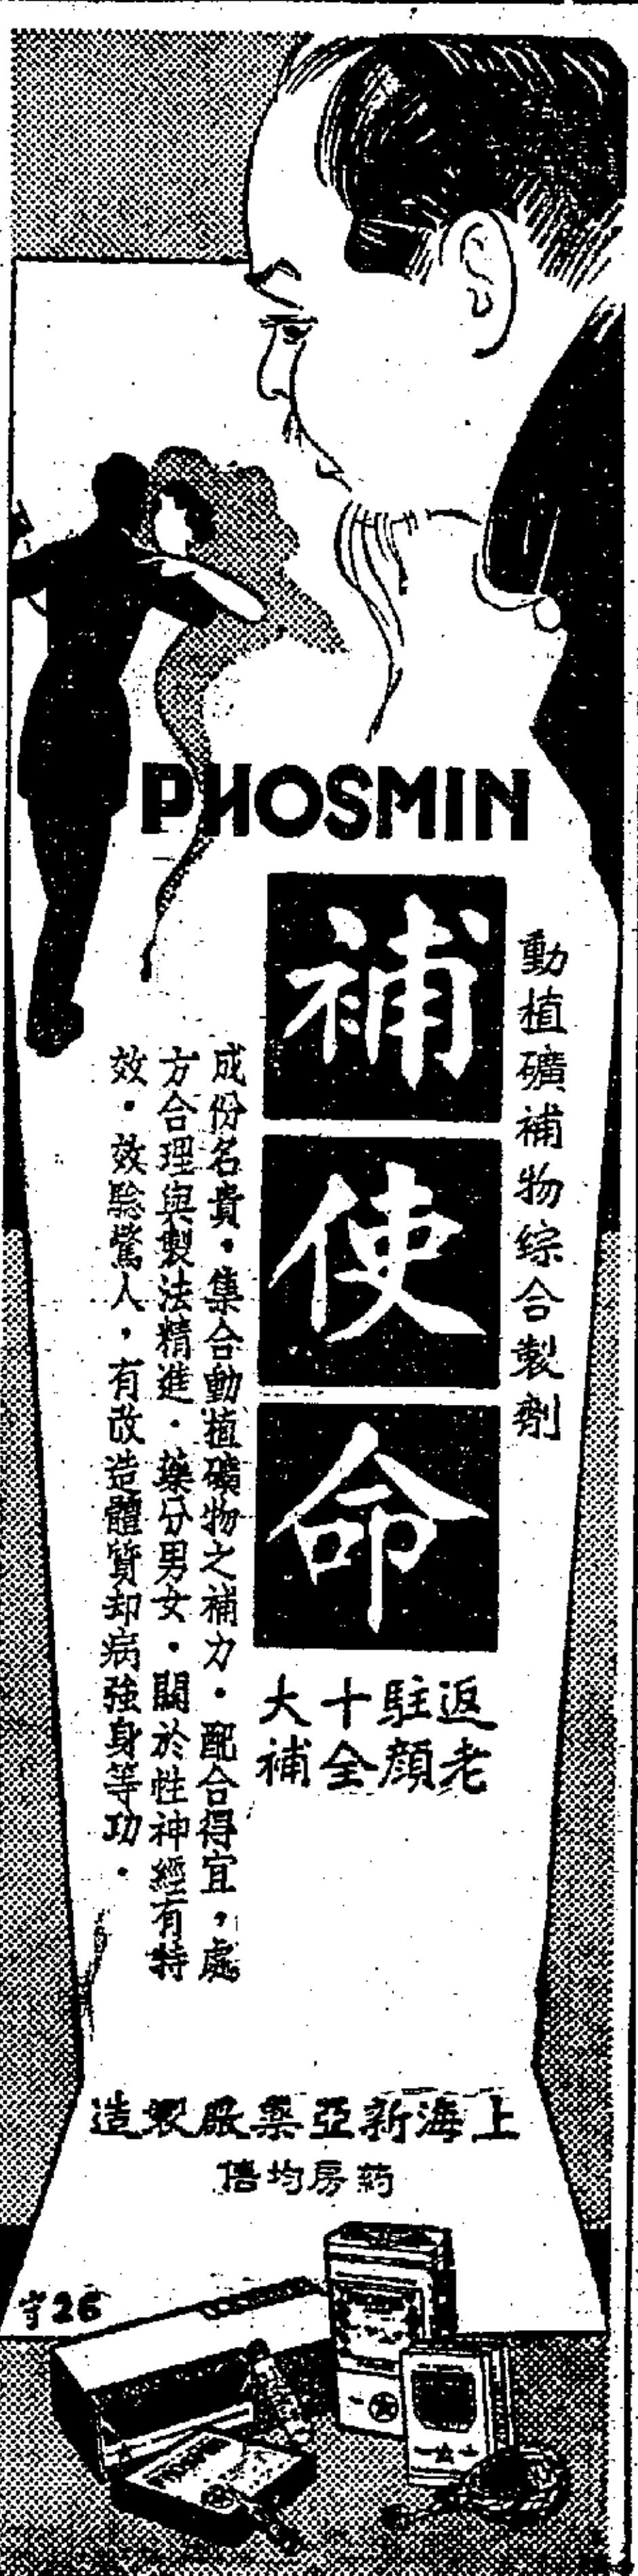 PHOSMIN
動植礦補物綜合製劑
補使命
返老
駐顏
十全
大補
成份名貴．集合動植礦物之補力．配合得宜，處
方合理與製法精進．藥分男女．關於性神經有特
效．效驗驚人，有改造體質却病強身等功．
上海新亞藥厰製造
葯房均售
26